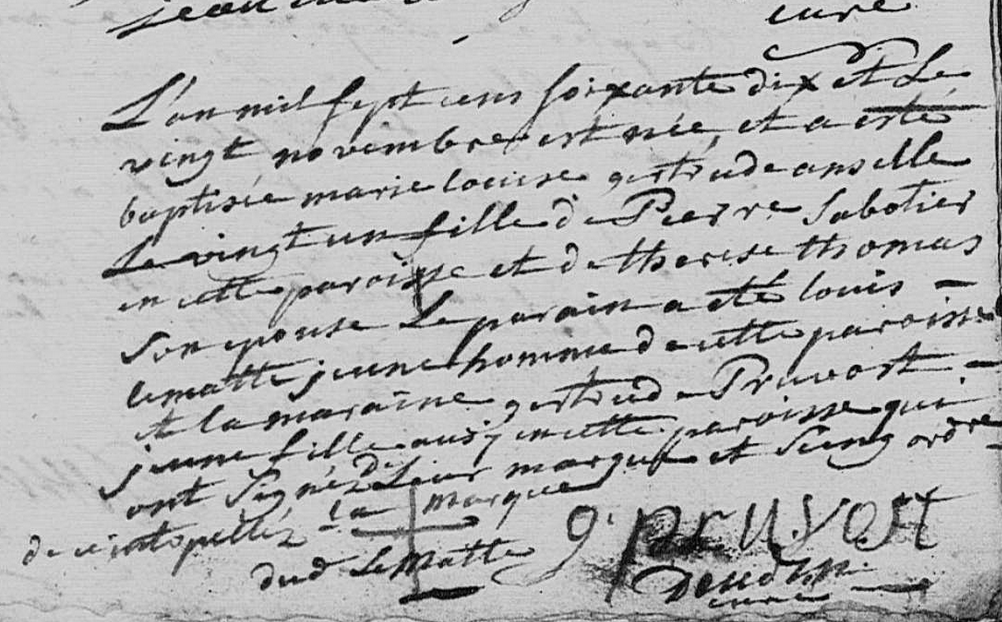 curé
L'an mil sept cens soixante dix et Le
vingt novembre est née, et a esté
baptisée marie louise gertrude anselle
Le vingt un fille de Pierre Sabotier
en cette paroisse et de therese thomas
son epouse Le parain a eté louis -
lematte jeune homme de cette paroisse
et la maraine gertrude Pruvost -
jeune fille aussj en cette paroisse qui
ont signéz de Leur marque et seing
de ce interpelléz la marque
dud Le Matte g. pruvost
curé